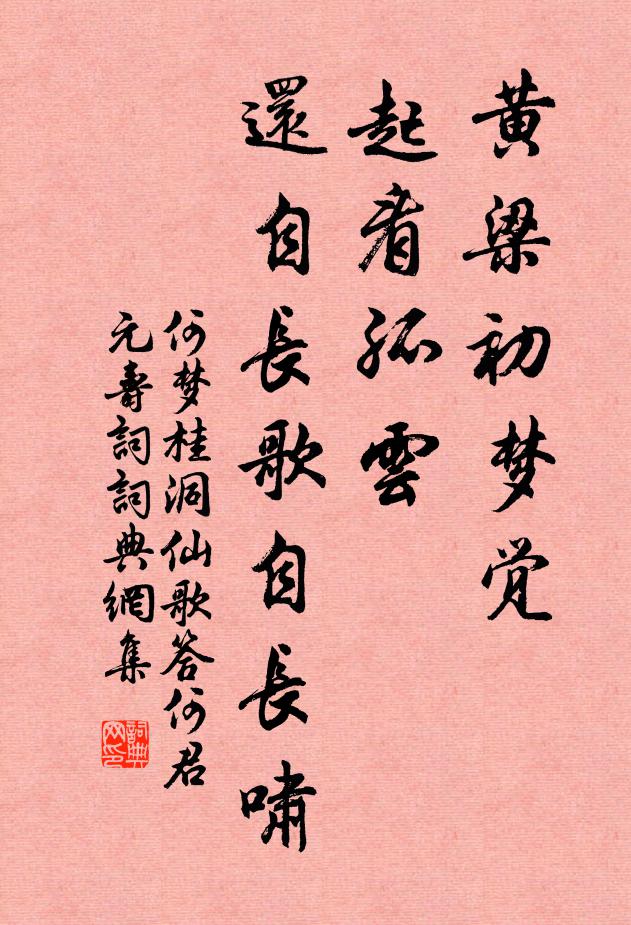 黄梁初梦觉
起看孤雲
還自長歌自長嘯
何梦桂洞仙歌答何君
元壽詞詞典網集
詞典
网印